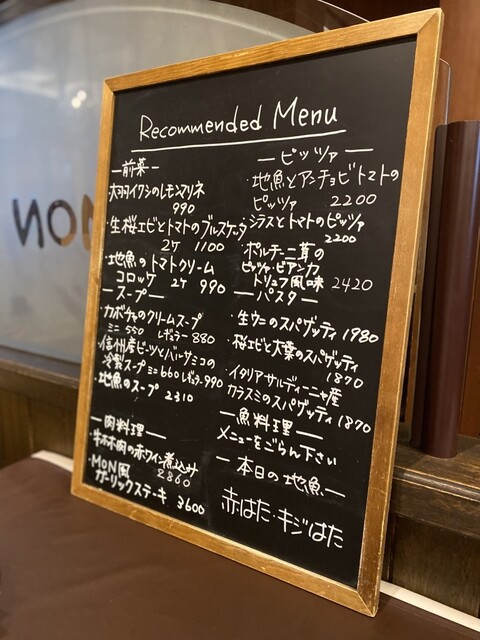 Recommended Menu
ー前菜ー
・大羽イワシのレモンマリネ
990
・生桜エビとトマトのブルスケッタ
2ケ 1100
・地魚のトマトクリーム
コロッケ 2ケ 990
ースープー
・カボチャのクリームスープ
ミニ 550 レギュラー 880
・信州産ビーツとバルサミコの
冷製スープ ミニ 660 レギュラー 990
・地魚のスープ 2310
ー肉料理ー
・牛ホホ肉の赤ワイン煮込み
2860
・MON風
ガーリックステーキ 3600
ーピッツァー
・地魚とアンチョビトマトの
ピッツァ 2200
・シラスとトマトのピッツァ
2200
・ポルチーニ茸の
ピッツァ・ビアンカ
トリュフ風味 2420
ーパスター
・生ウニのスパゲッティ 1980
・桜エビと大葉のスパゲッティ
1870
・イタリアサルディーニャ産
カラスミのスパゲッティ 1870
ー魚料理ー
メニューをごらん下さい
ー本日の地魚ー
赤はた・キジはた
MON